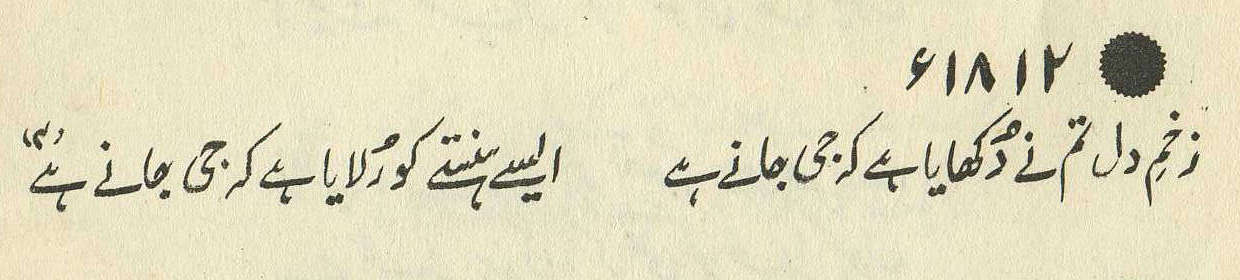 ۱۸۱۲ء
زخمِ دل تم نے دُکھایا ہے کہ جی جانے ہے ایسے ہنستے کو رُلایا ہے کہ جی جانے ہے